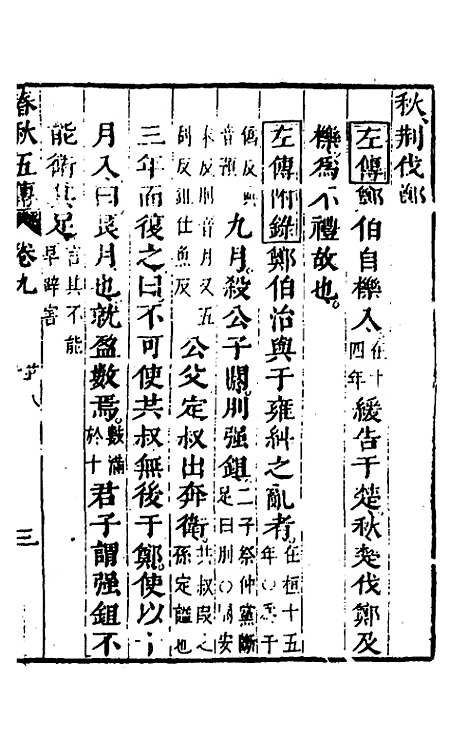 秋荆伐鄭
左傳鄭伯自櫟入在十四年緩告于楚秋楚伐鄭及
櫟爲不禮故也
左傳附錄鄭伯治與于雍糾之亂者在桓十五年○與于
音預九月殺公子閼刖强鉏二子祭仲黨斷足曰刖○閼安
末反刖音月又五刮反鉏仕魚反公父定叔出奔衛共叔段之孫定謚也
三年而復之曰不可使共叔無後于鄭使以十
月入曰良月也就盈數焉數滿於十君子謂强鉏不
能衛其足言其不能早辟害
春秋五傳 卷九 三